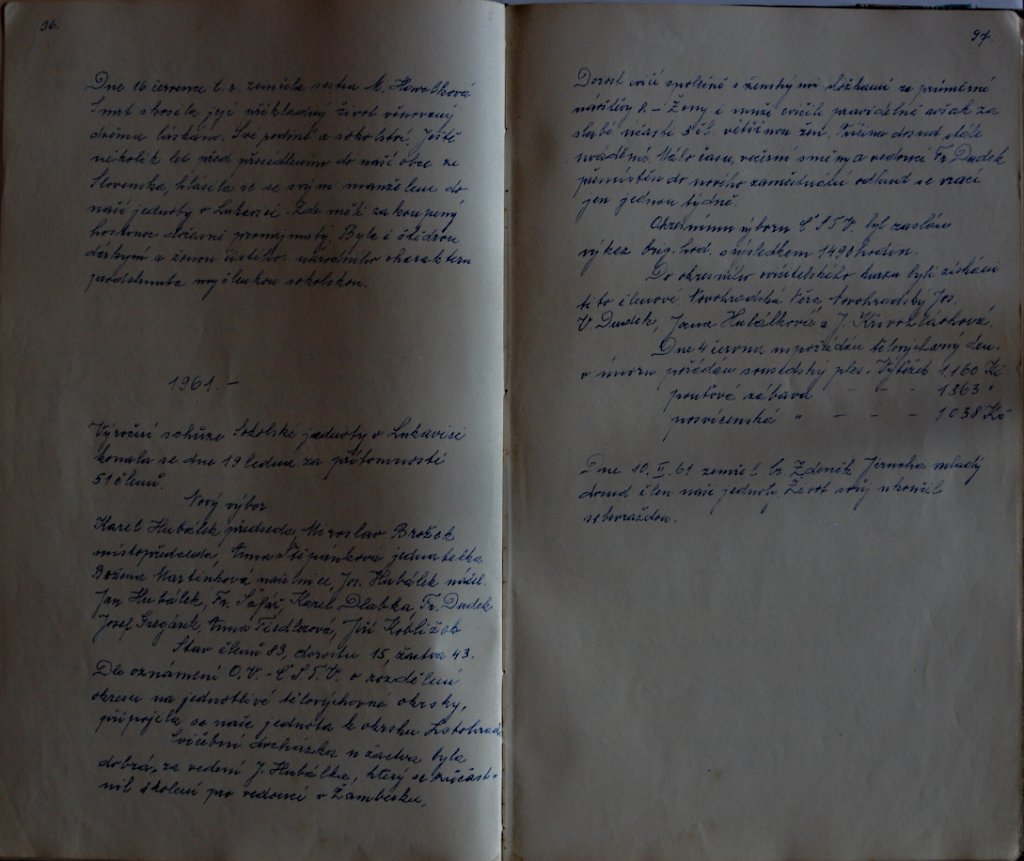 96.
Dne 16 července t. r. zemřela sestra M. Havelková
Smrt skosila její příkladný život věnovaný
dvěma láskám. Své rodině a sokolství. Ještě
několik let před přesídlením do naší obce ze
Slovenska, hlásila se se svým manželem do
naší jednoty v Lukavici. Zde měli zakoupený
hostinec dočasně pronajmutý. Byla i štědrou
dárkyní a ženou čistého národního charakteru
prodchnuta myšlenkou sokolskou.
1961.-
Výroční schůze Sokolské jednoty v Lukavici
konala se dne 19 ledna za přítomnosti
51 členů.
Nový výbor.
Karel Hubálek, předseda, Miroslav Brožek
místopředseda, Anna Štěpánkova jednatelka
Božena Martinková náčelnice, Jos. Hubálek náčel.
Jan Hubálek, Fr. Šafář, Karel Dlabka, Fr. Dudek
Josef Gregárek, Anna Fiedlerová, Jiří Koblížek
Stav členů 83, dorostu 15, žactva 43.
Dle oznámení O.V.-ČSTV. o rozdělení
okresu na jednotlivé tělovýchovné okrsky,
připojela se naše jednota k okrsku Letohrad
Cvičební docházka u žactva byla
dobrá, za vedení J. Hubálka, který se zúčast-
nil školení pro vedoucí v Žamberku.
97.
Dorost cvičí společně s ženskými složkami ze průměrné
návštěvy 8 - Ženy i muže cvičili pravidelně avšak za
slabé účasti 5 čl. většinou žen. Příčina dosud stále
uváděná. Málo času, večerní směny a vedoucí Fr. Dudek
přemístěn do nového zaměstnání odkud se vrací
jen jednou týdně.
Okresnímu výboru ČSTV. byl zaslán
výkaz brig. hod. s výsledkem 1490 hodin.
Do okresního cvičitelského kurzu byli získáni
tito členové Novohradská Věra, Novohradský Jos.
V. Dudek, Jana Hubálková a J. Křivohlávková.
Dne 4 června uspořádán tělovýchovný den.
v únoru pořádán sousedský ples. Výtěžek 1.160 Kč
pouťová zábava - - - 1363 "
posvícenská " - - - 1.038 Kč
Dne 10. II. 61 zemřel br. Zdeněk Jirucha mladý
dosud člen naší jednoty, Život svůj ukončil
sebevraždou.